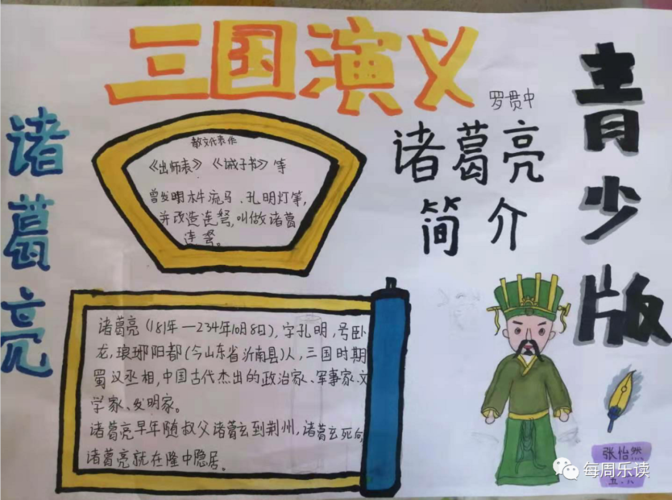 三国演义
罗贯中
青少版
诸葛亮
诸葛亮
简介
散文代表作
《出师表》《诫子书》等
曾发明木牛流马、孔明灯等,
并改造连弩,叫做诸葛
连弩。
诸葛亮(181年—234年10月8日),字孔明,号卧
龙,琅琊阳都(今山东省沂南县)人,三国时期
蜀汉丞相,中国古代杰出的政治家、军事家、文
学家、发明家。
诸葛亮早年随叔父诸葛玄到荆州,诸葛玄死后
诸葛亮就在隆中隐居。
张怡然
每周乐读